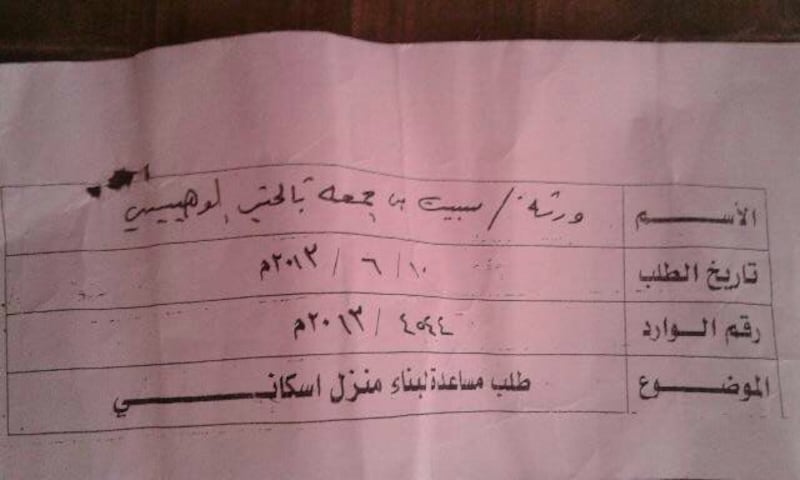 الأســـم ورثة / سبيت بن جمعه بالخير الوهيبي
تاريخ الطلب ١٠ / ٦ / ٢٠١٣م
رقم الـوارد ٤٥٤٤ / ٢٠١٣م
الموضـــوع طلب مساعدة لبناء منزل اسكانـــــــي